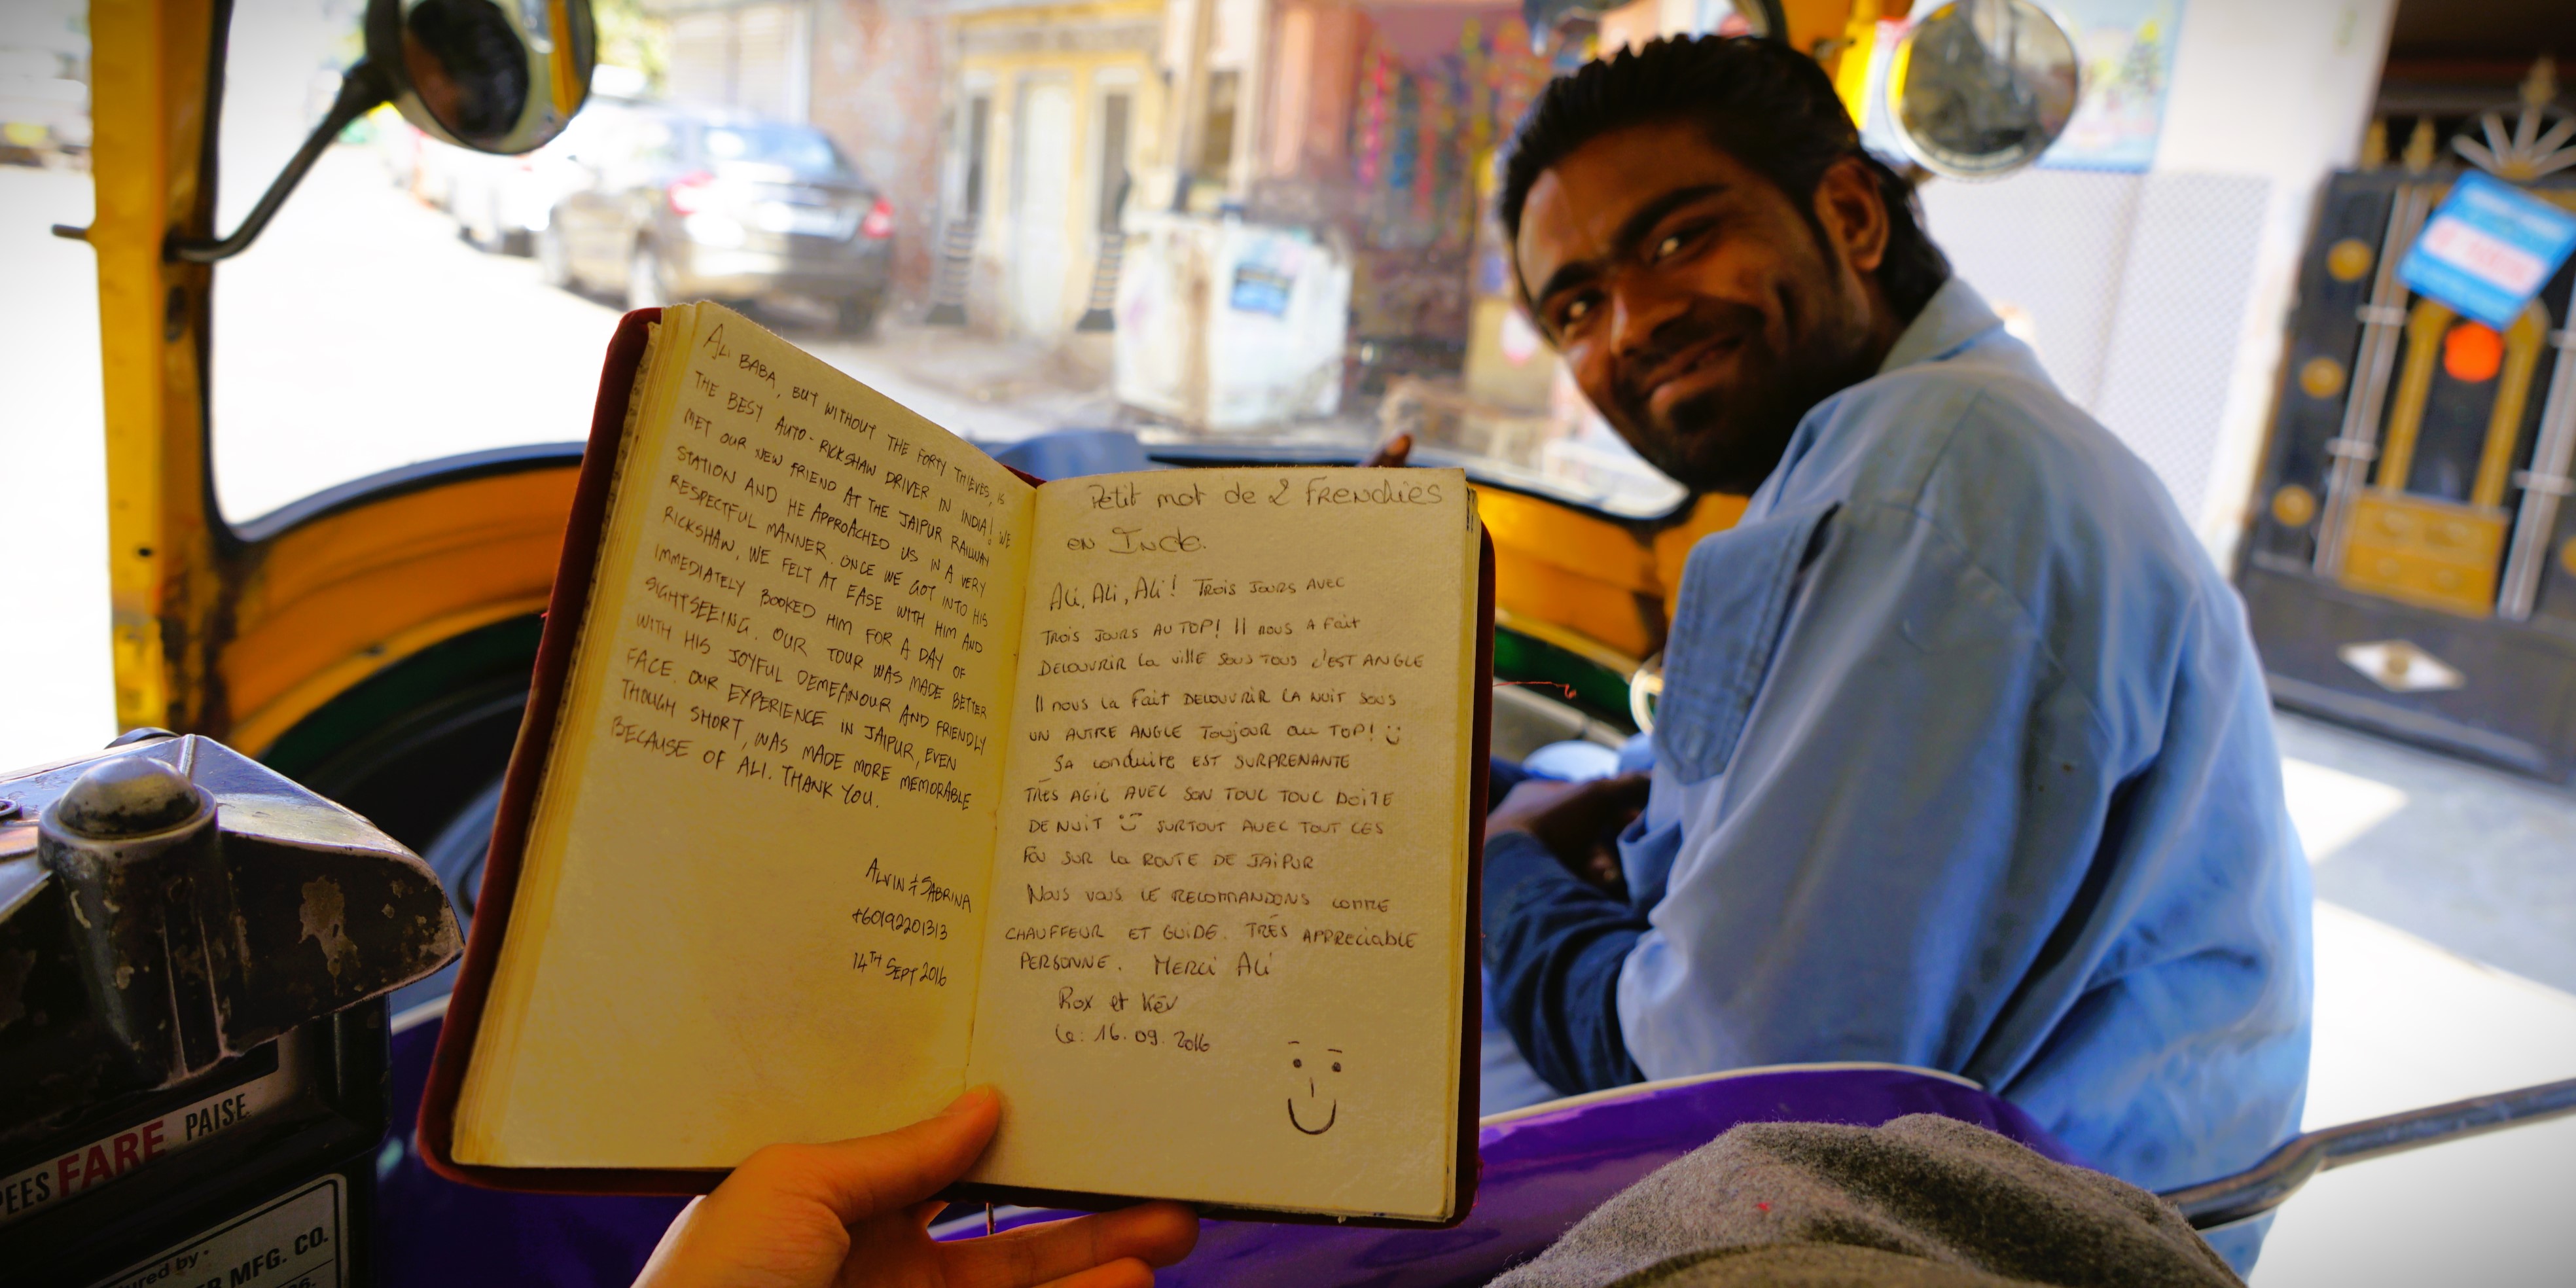 ALI BABA, BUT WITHOUT THE FORTY THIEVES, IS
THE BEST AUTO-RICKSHAW DRIVER IN INDIA! WE
MET OUR NEW FRIEND AT THE JAIPUR RAILWAY
STATION AND HE APPROACHED US IN A VERY
RESPECTFUL MANNER. ONCE WE GOT INTO HIS
RICKSHAW, WE FELT AT EASE WITH HIM AND
IMMEDIATELY BOOKED HIM FOR A DAY OF
SIGHTSEEING. OUR TOUR WAS MADE BETTER
WITH HIS JOYFUL DEMEANOUR AND FRIENDLY
FACE. OUR EXPERIENCE IN JAIPUR, EVEN
THOUGH SHORT, WAS MADE MORE MEMORABLE
BECAUSE OF ALI. THANK YOU.
ALVIN & SABRINA
+60192201313
14TH SEPT 2016
Petit mot de 2 FRENCHIES
EN INDE.
Ali, Ali, Ali! TROIS JOURS AVEC
TROIS JOURS AU TOP! Il nous A Fait
DECOUVRIR la ville SOUS TOUS C'EST ANGLE
Il nous la Fait DECOUVRIR LA NUIT SOUS
UN AUTRE ANGLE Toujour au TOP!
SA conduite EST SURPRENANTE
TRÈS AGIL AVEC SON TOUC TOUC DOITE
DE NUIT SURTOUT AVEC TOUT CES
FOU SUR la ROUTE DE JAIPUR
Nous vous LE RECOMMANDONS COMME
CHAUFFEUR ET GUIDE. TRÈS APPRECIABLE
PERSONNE. MERCI ALI
Rox et Kév
Le: 16.09.2016
FARE PAISE
MFG. CO.